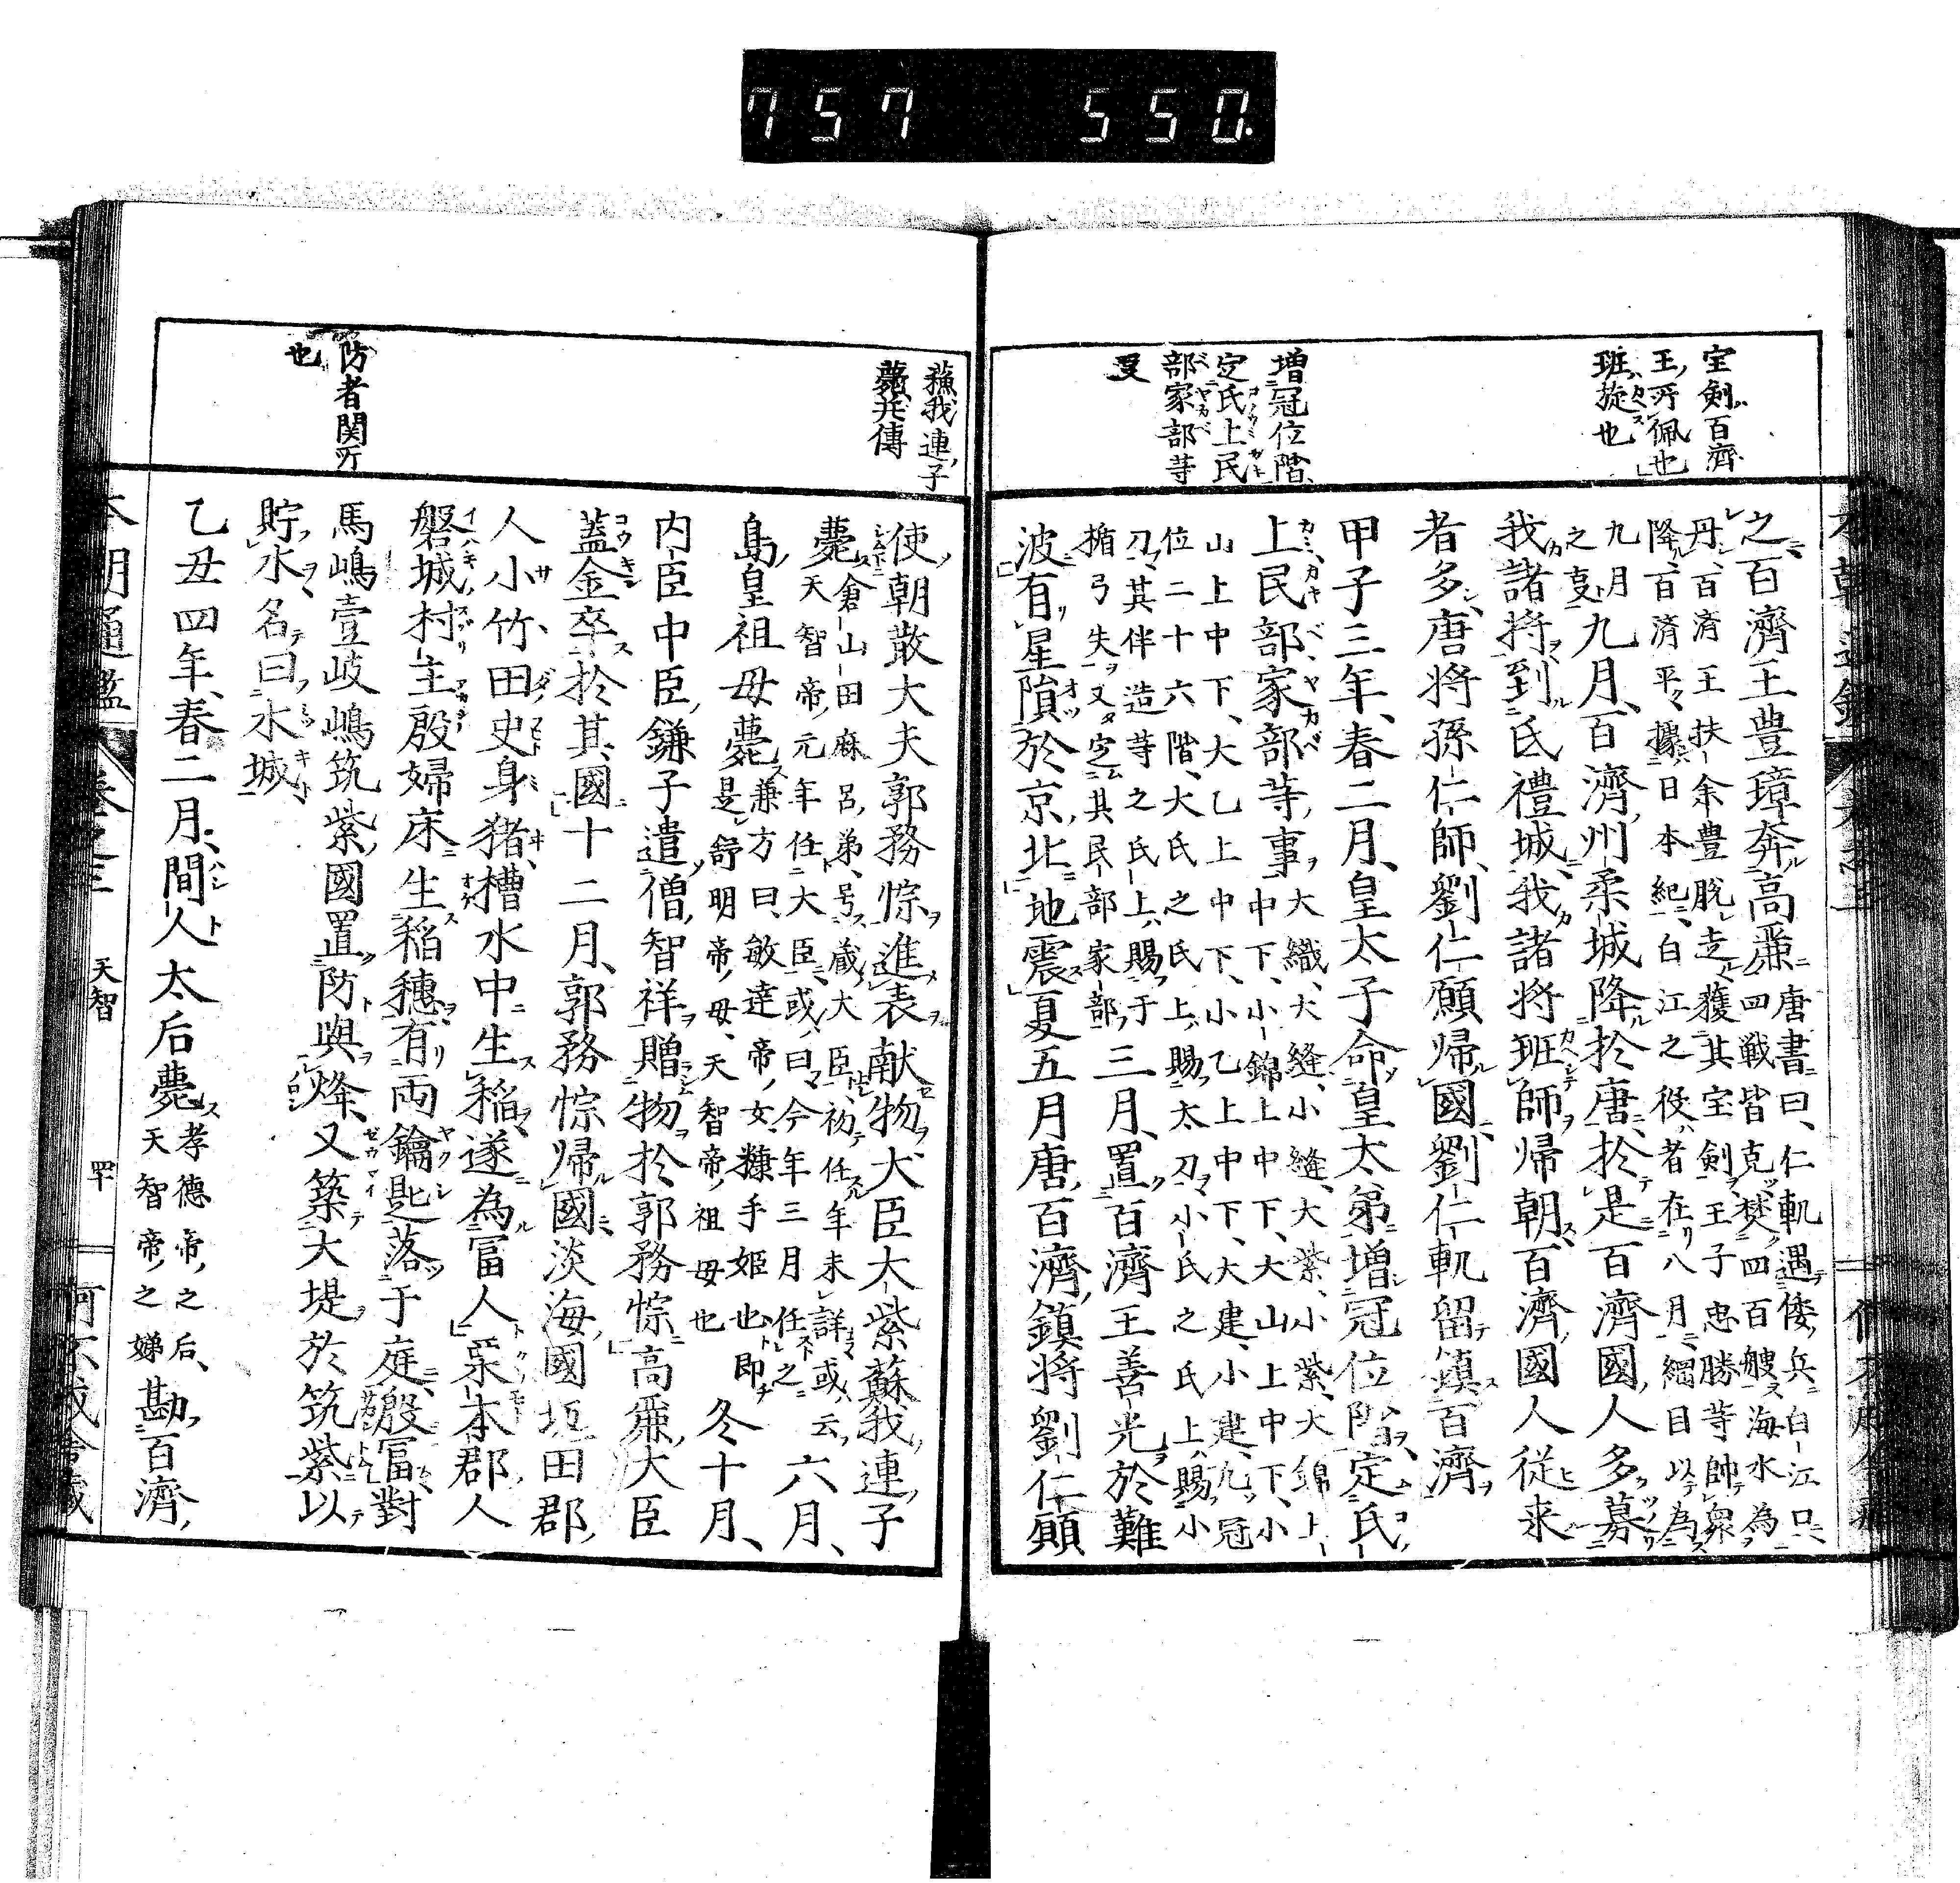 757 550.
宝剣百濟
王所佩也
班旋也
増冠位階
定氏上民
部家部䓁
㕝
之百濟王豊璋奔高䴡唐書曰、仁軌遇倭兵白江口
丹、百済王扶余豊脱走獲其宝剣、王子忠勝䓁帥衆四戦皆克、焚四百艘海水為
降、百済平、據日本紀、白江之役者在八月綱目以為
九月
之㕝九月、百濟州柔城降於唐、於是百濟國人多募
我諸将到氐禮城、我諸将班師帰朝、百濟國人従来
者多、唐将孫仁師、劉仁願帰國、劉仁軌留鎮百濟
甲子三年、春二月、皇太子命皇太弟増冠位階、定氏
上民部家部䓁事、大織、大縫、小縫、大紫、小紫、大錦上
中下、小錦上中下、大山上中下、小
山上中下、大乙上中下、小乙上中下、大建、小建、九冠
位二十六階、大氏之氏上、賜太刀、小氏之氏上、賜小
刀、其伴造䓁之氏上、賜于
楯弓矢、又定其民部家部、三月、置百濟王善光於難
波有星隕於京北、地震夏五月唐百濟鎮将劉仁願
蘇我連子
薨幷傳
使朝散大夫郭務悰進表献物、大臣大紫蘇我連子
薨倉山田麻呂弟、号蔵大臣、初任年未詳或云、
天智帝元年任大臣、或曰今年三月任之六月、
島皇祖母薨兼方曰、敏達帝女、糠手姫也即
是舒明帝母、天智帝祖母也冬十月、
内臣中臣鎌子遣僧智祥贈物於郭務悰高䴡大臣
蓋金卒於其國十二月、郭務悰帰國淡海國坂田郡
人小竹田史身猪槽水中生稲、遂為冨人栗本郡人
磐城村主殷婦床生稲穂有両鑰匙落于庭、殷冨對
馬嶋壹岐嶋筑紫國置防與烽、又築大堤於筑紫以
貯水名曰水城
防者関所
也
乙丑四年、春二月、間人太后薨孝德帝之后、
天智帝之娣勘百濟
本朝通鑑 卷之三 天智 罕